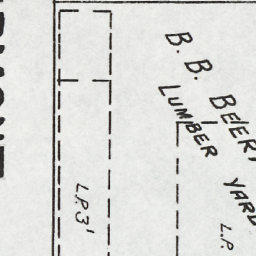 B. B. BEIERI
LUMBER
YARD
L.P.
L.P.3'